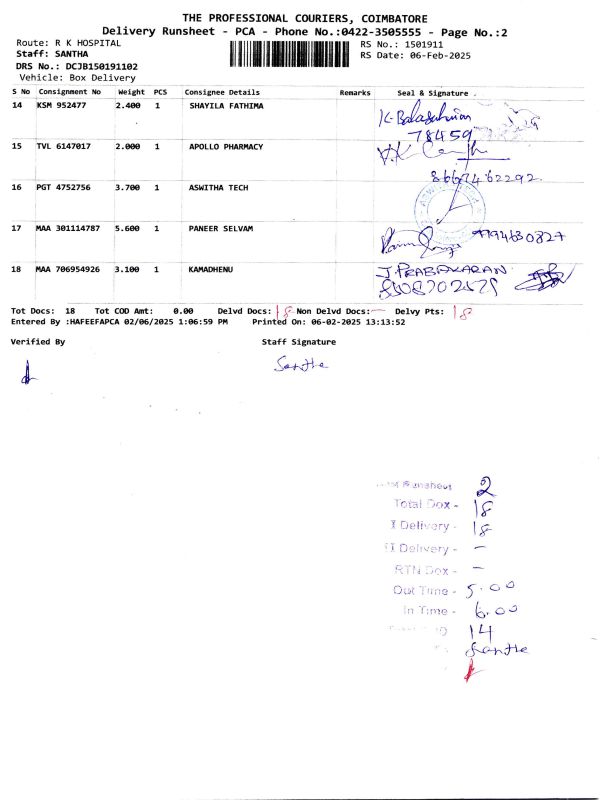 THE PROFESSIONAL COURIERS, COIMBATORE
Delivery Runsheet - PCA - Phone No.:0422-3505555 - Page No.:2
Route: R K HOSPITAL
RS No.: 1501911
Staff: SANTHA
RS Date: 06-Feb-2025
DRS No.: DCJB150191102
Vehicle: Box Delivery
S No Consignment No Weight PCS Consignee Details Remarks Seal & Signature
14 KSM 952477 2.400 1 SHAYILA FATHIMA
78459
15 TVL 6147017 2.000 1 APOLLO PHARMACY
16 PGT 4752756 3.700 1 ASWITHA TECH
17 MAA 301114787 5.600 1 PANEER SELVAM
18 MAA 706954926 3.100 1 KAMADHENU J. PRABAKARAN
Tot Docs: 18 Tot COD Amt: 0.00 Delvd Docs: 18 Non Delvd Docs: - Delvy Pts: 18
Entered By :HAFEEFAPCA 02/06/2025 1:06:59 PM Printed On: 06-02-2025 13:13:52
Verified By Staff Signature
Santha
2
Total Dox - 18
I Delivery - 18
II Delivery - -
RTN Dox - -
Out Time - 5.00
In Time - 6.00
14
Santha